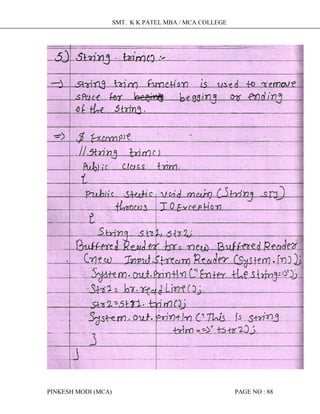 SMT. K K PATEL MBA / MCA COLLEGE
5) String trim() :-
→ string trim function is used to remove
space for begging or ending
of the string.
⇒ Example
// string trim()
Public class trim
{
Public static void main (String s[])
throws IOException
{
String str1, str2;
Buffered Reader br = new Buffered Reader
(new Input Stream Reader (System.in));
System.out.println ("Enter the string=>");
Str1 = br.readLine();
str2 = str1.trim();
System.out.println ("This is string
trim ==>" + str2);
}
}
PINKESH MODI (MCA)
PAGE NO : 88